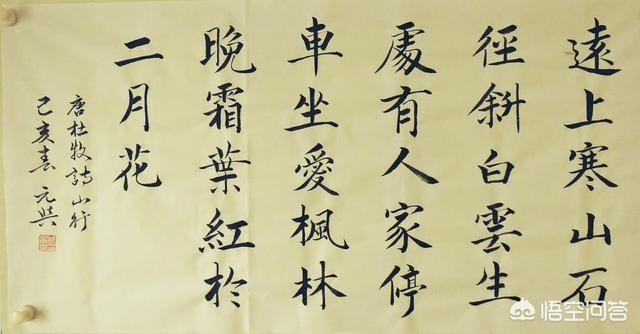 遠上寒山石
徑斜白雲生
處有人家停
車坐愛楓林
晚霜葉紅於
二月花
唐杜牧詩山行
己亥春 元
悟空问答